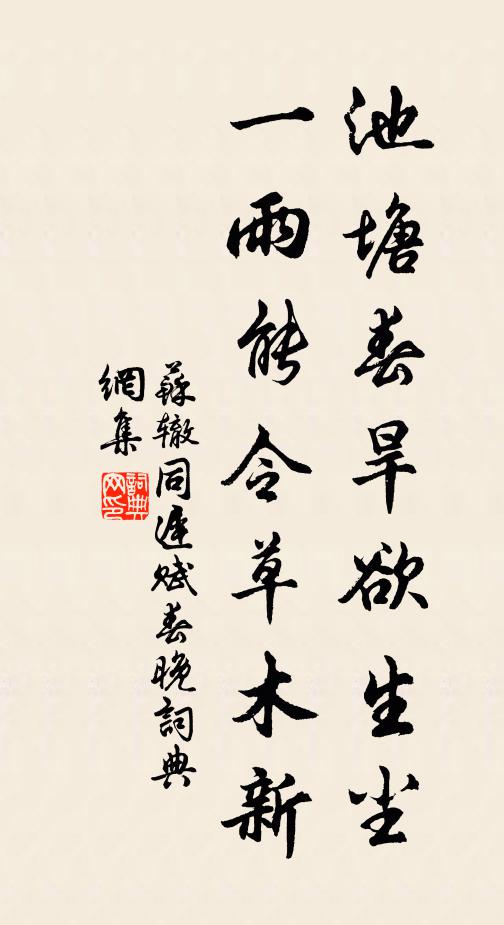 池塘春旱欲生尘
一雨能令草木新
蘇辙同遲赋春晚詞典
網集
詞典
网印